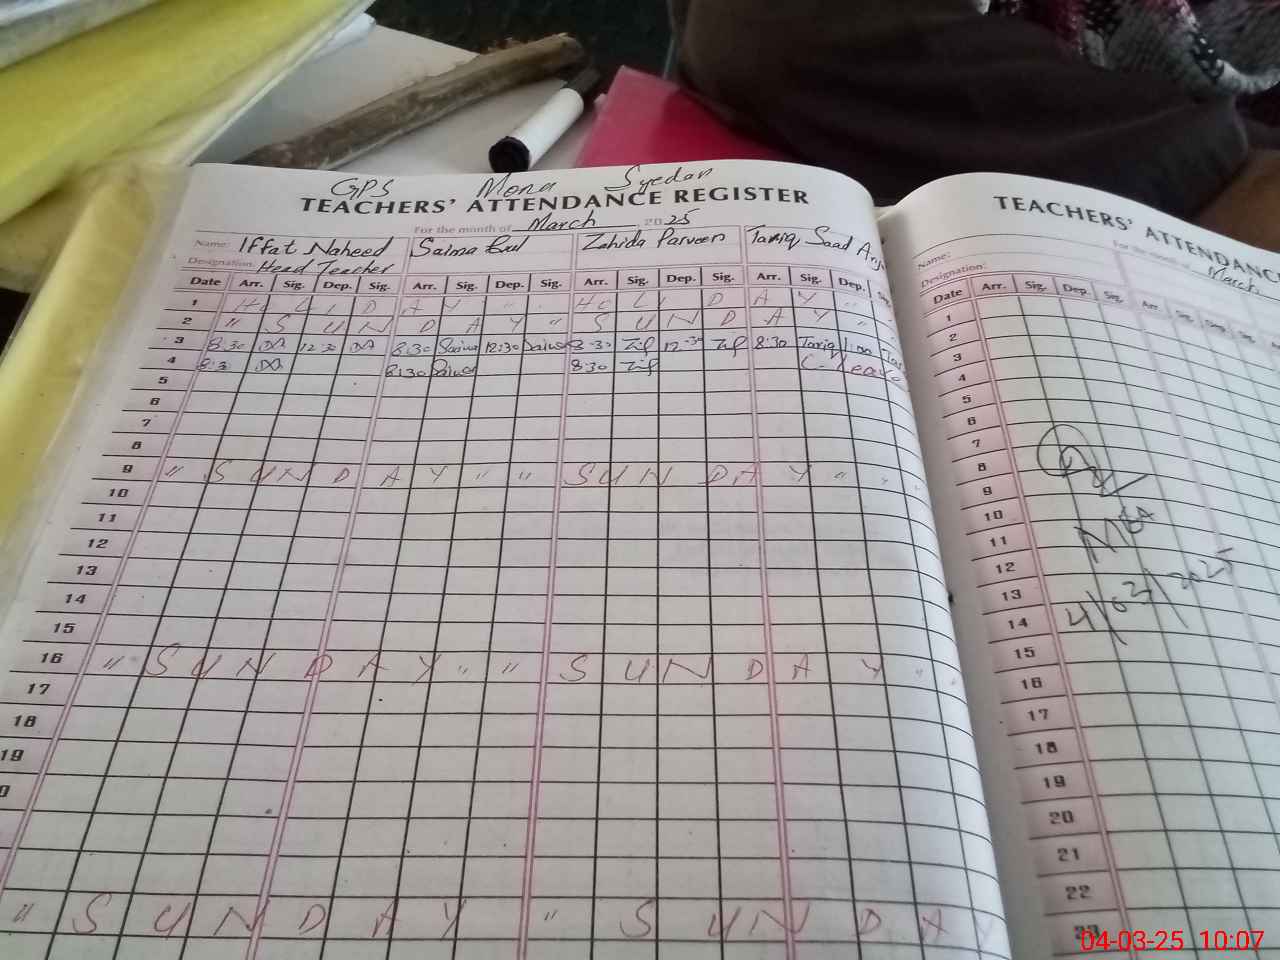 GPS Mona Syedan
TEACHERS' ATTENDANCE REGISTER
For the month of March 2025
Name: Iffat Naheed Saima Zahida Parveen Tariq Saad
Designation: Head Teacher
Date Arr. Sig. Dep. Sig. Arr. Sig. Dep. Sig. Arr. Sig. Dep. Sig. Arr. Sig. Dep.
1 HOLIDAY " HOLIDAY "
2 " SUNDAY " SUNDAY "
3 8:30 12:30 8:30 Saima 12:30 Saima 8:30 12:30 8:30 Tariq 1:00
4 8:30 8:30 Saima 8:30 C. Leave
5
6
7
8
9 " SUNDAY " " SUNDAY " "
10
11
12
13
14
15
16 " SUNDAY " " SUNDAY "
17
18
19
" SUNDAY " SUNDAY
TEACHERS' ATTENDANC
For the month of March
Name:
Designation:
Date Arr. Sig. Dep. Sig. Arr. Sig. Dep. Sig.
1
2
3
4
5
6
7
8
9
10
11
12
13
14
15
16
17
18
19
20
21
22
23
MEA
4/03/2025
04-03-25 10:07